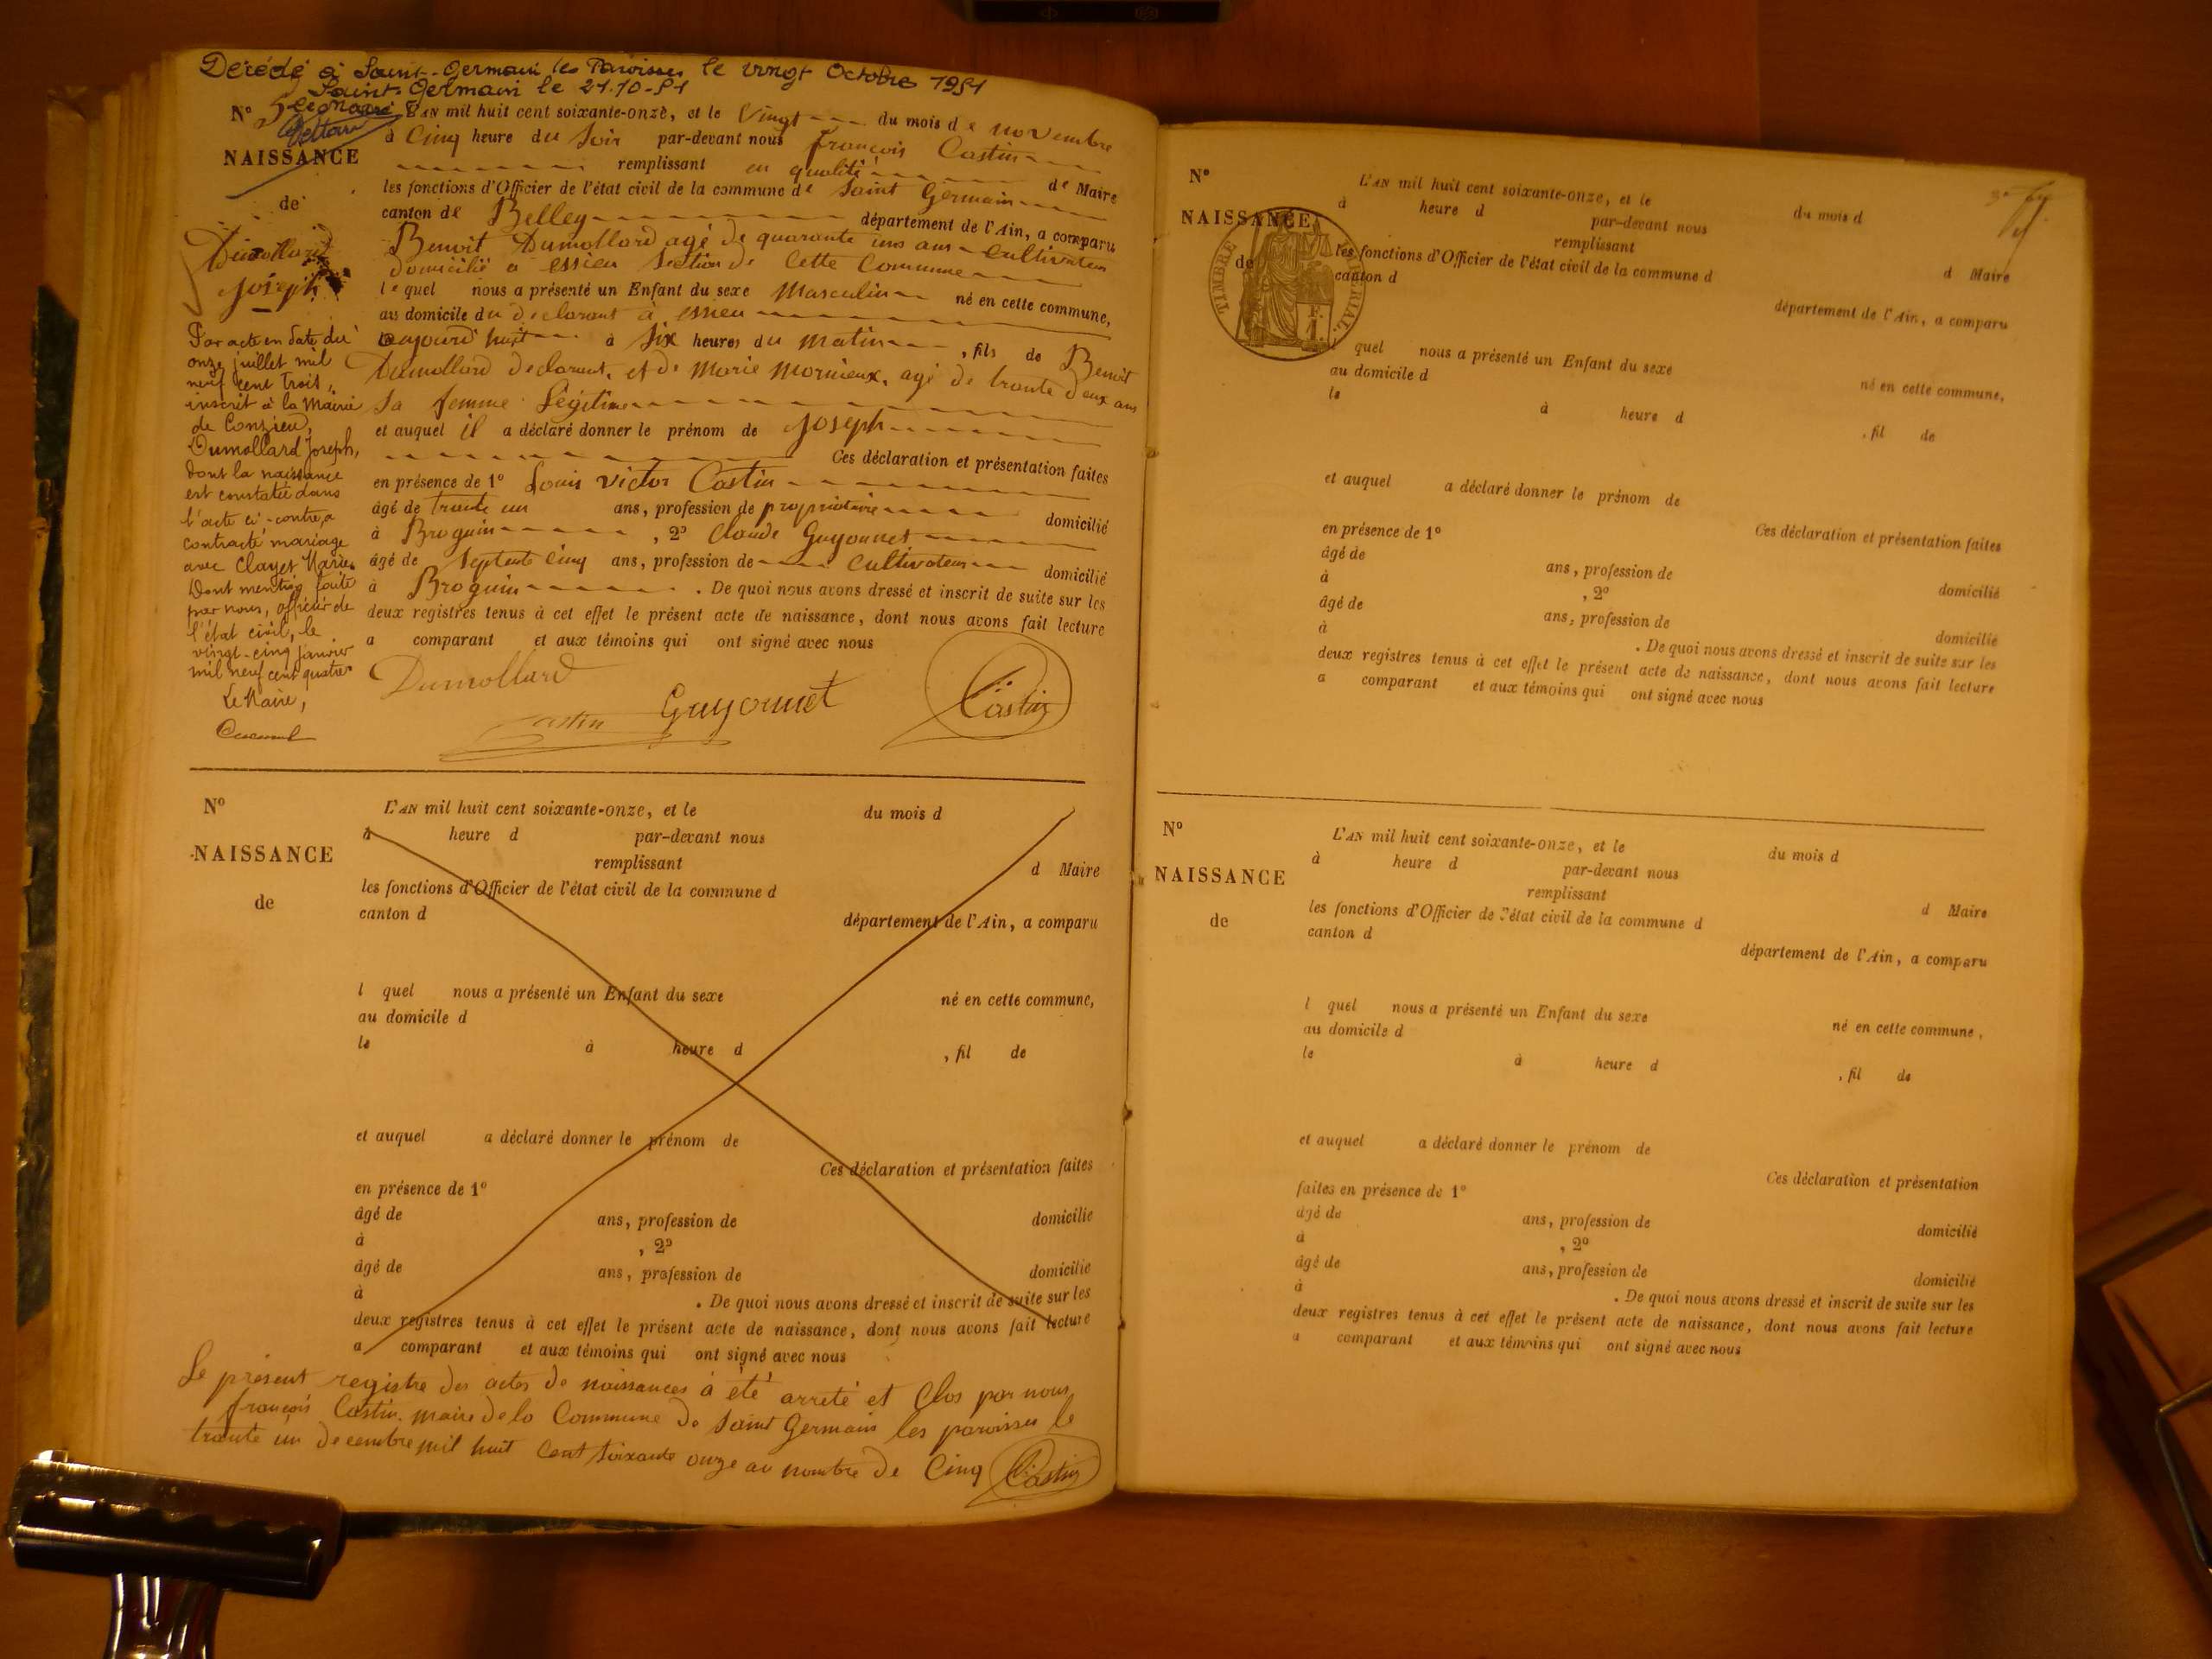 Décédé à Saint-Germain les Paroisses le vingt Octobre 1951
Saint-Germain le 21-10-51
N° 5
NAISSANCE
de
Dumollard
Joseph
Par acte en date du
onze juillet mil
neuf cent trois,
inscrit à la Mairie
de Conzieu,
Dumollard Joseph,
dont la naissance
est constatée dans
l'acte ci-contre, a
contracté mariage
avec Clayet Marie.
Dont mention faite
par nous, officier de
l'état civil, le
vingt-cinq janvier
mil neuf cent quatre
Le Maire,
L'AN mil huit cent soixante-onze, et le Vingt du mois de novembre
à Cinq heure du Soir par-devant nous françois Castin
remplissant en qualité de Maire
les fonctions d'Officier de l'état civil de la commune de Saint Germain
canton de Belley département de l'Ain, a comparu
Benoit Dumollard agé de quarante uns ans Cultivateur
domicilié a essieu Section de Cette Commune
lequel nous a présenté un Enfant du sexe Masculin né en cette commune,
au domicile du declarant à essieu
aujourd'huit à Six heures du matin, fils de Benoit
Dumollard declarant, et de Marie Mornieux, agé de trante deux ans
Sa femme Légitime
et auquel il a déclaré donner le prénom de Joseph
Ces déclaration et présentation faites
en présence de 1° Louis Victor Castin
âgé de trante un ans, profession de propriétaire domicilié
à Brognin, 2° Claude Guyonnet
âgé de Septente Cinq ans, profession de Cultivateur domicilié
à Brognin. De quoi nous avons dressé et inscrit de suite sur les
deux registres tenus à cet effet le présent acte de naissance, dont nous avons fait lecture
a comparant et aux témoins qui ont signé avec nous
Dumollard
Castin Guyonnet Castin
N°
NAISSANCE
de
L'AN mil huit cent soixante-onze, et le du mois d
à heure d par-devant nous
remplissant d Maire
les fonctions d'Officier de l'état civil de la commune d
canton d département de l'Ain, a comparu
l quel nous a présenté un Enfant du sexe né en cette commune,
au domicile d
le à heure d , fil de
et auquel a déclaré donner le prénom de
Ces déclaration et présentation faites
en présence de 1°
âgé de ans, profession de domicilié
à , 2°
âgé de ans, profession de domicilié
à . De quoi nous avons dressé et inscrit de suite sur les
deux registres tenus à cet effet le présent acte de naissance, dont nous avons fait lecture
a comparant et aux témoins qui ont signé avec nous
Le présent registre des actes de naissances à été arreté et Clos par nous
françois Castin, maire de la Commune de Saint Germain les paroisses le
trante un decembre mil huit Cent Soixante onze au nombre de Cinq Castin
N°
NAISSANCE
de
TIMBRE IMPERIAL
1 F.
L'AN mil huit cent soixante-onze, et le du mois d
à heure d par-devant nous
remplissant d Maire
les fonctions d'Officier de l'état civil de la commune d
canton d département de l'Ain, a comparu
l quel nous a présenté un Enfant du sexe né en cette commune,
au domicile d
le à heure d , fil de
et auquel a déclaré donner le prénom de
Ces déclaration et présentation faites
en présence de 1°
âgé de ans, profession de domicilié
à , 2°
âgé de ans, profession de domicilié
à . De quoi nous avons dressé et inscrit de suite sur les
deux registres tenus à cet effet le présent acte de naissance, dont nous avons fait lecture
a comparant et aux témoins qui ont signé avec nous
N°
NAISSANCE
de
L'AN mil huit cent soixante-onze, et le du mois d
à heure d par-devant nous
remplissant d Maire
les fonctions d'Officier de l'état civil de la commune d
canton d département de l'Ain, a comparu
l quel nous a présenté un Enfant du sexe né en cette commune,
au domicile d
le à heure d , fil de
et auquel a déclaré donner le prénom de
Ces déclaration et présentation
faites en présence de 1°
âgé de ans, profession de domicilié
à , 2°
âgé de ans, profession de domicilié
à . De quoi nous avons dressé et inscrit de suite sur les
deux registres tenus à cet effet le présent acte de naissance, dont nous avons fait lecture
a comparant et aux témoins qui ont signé avec nous